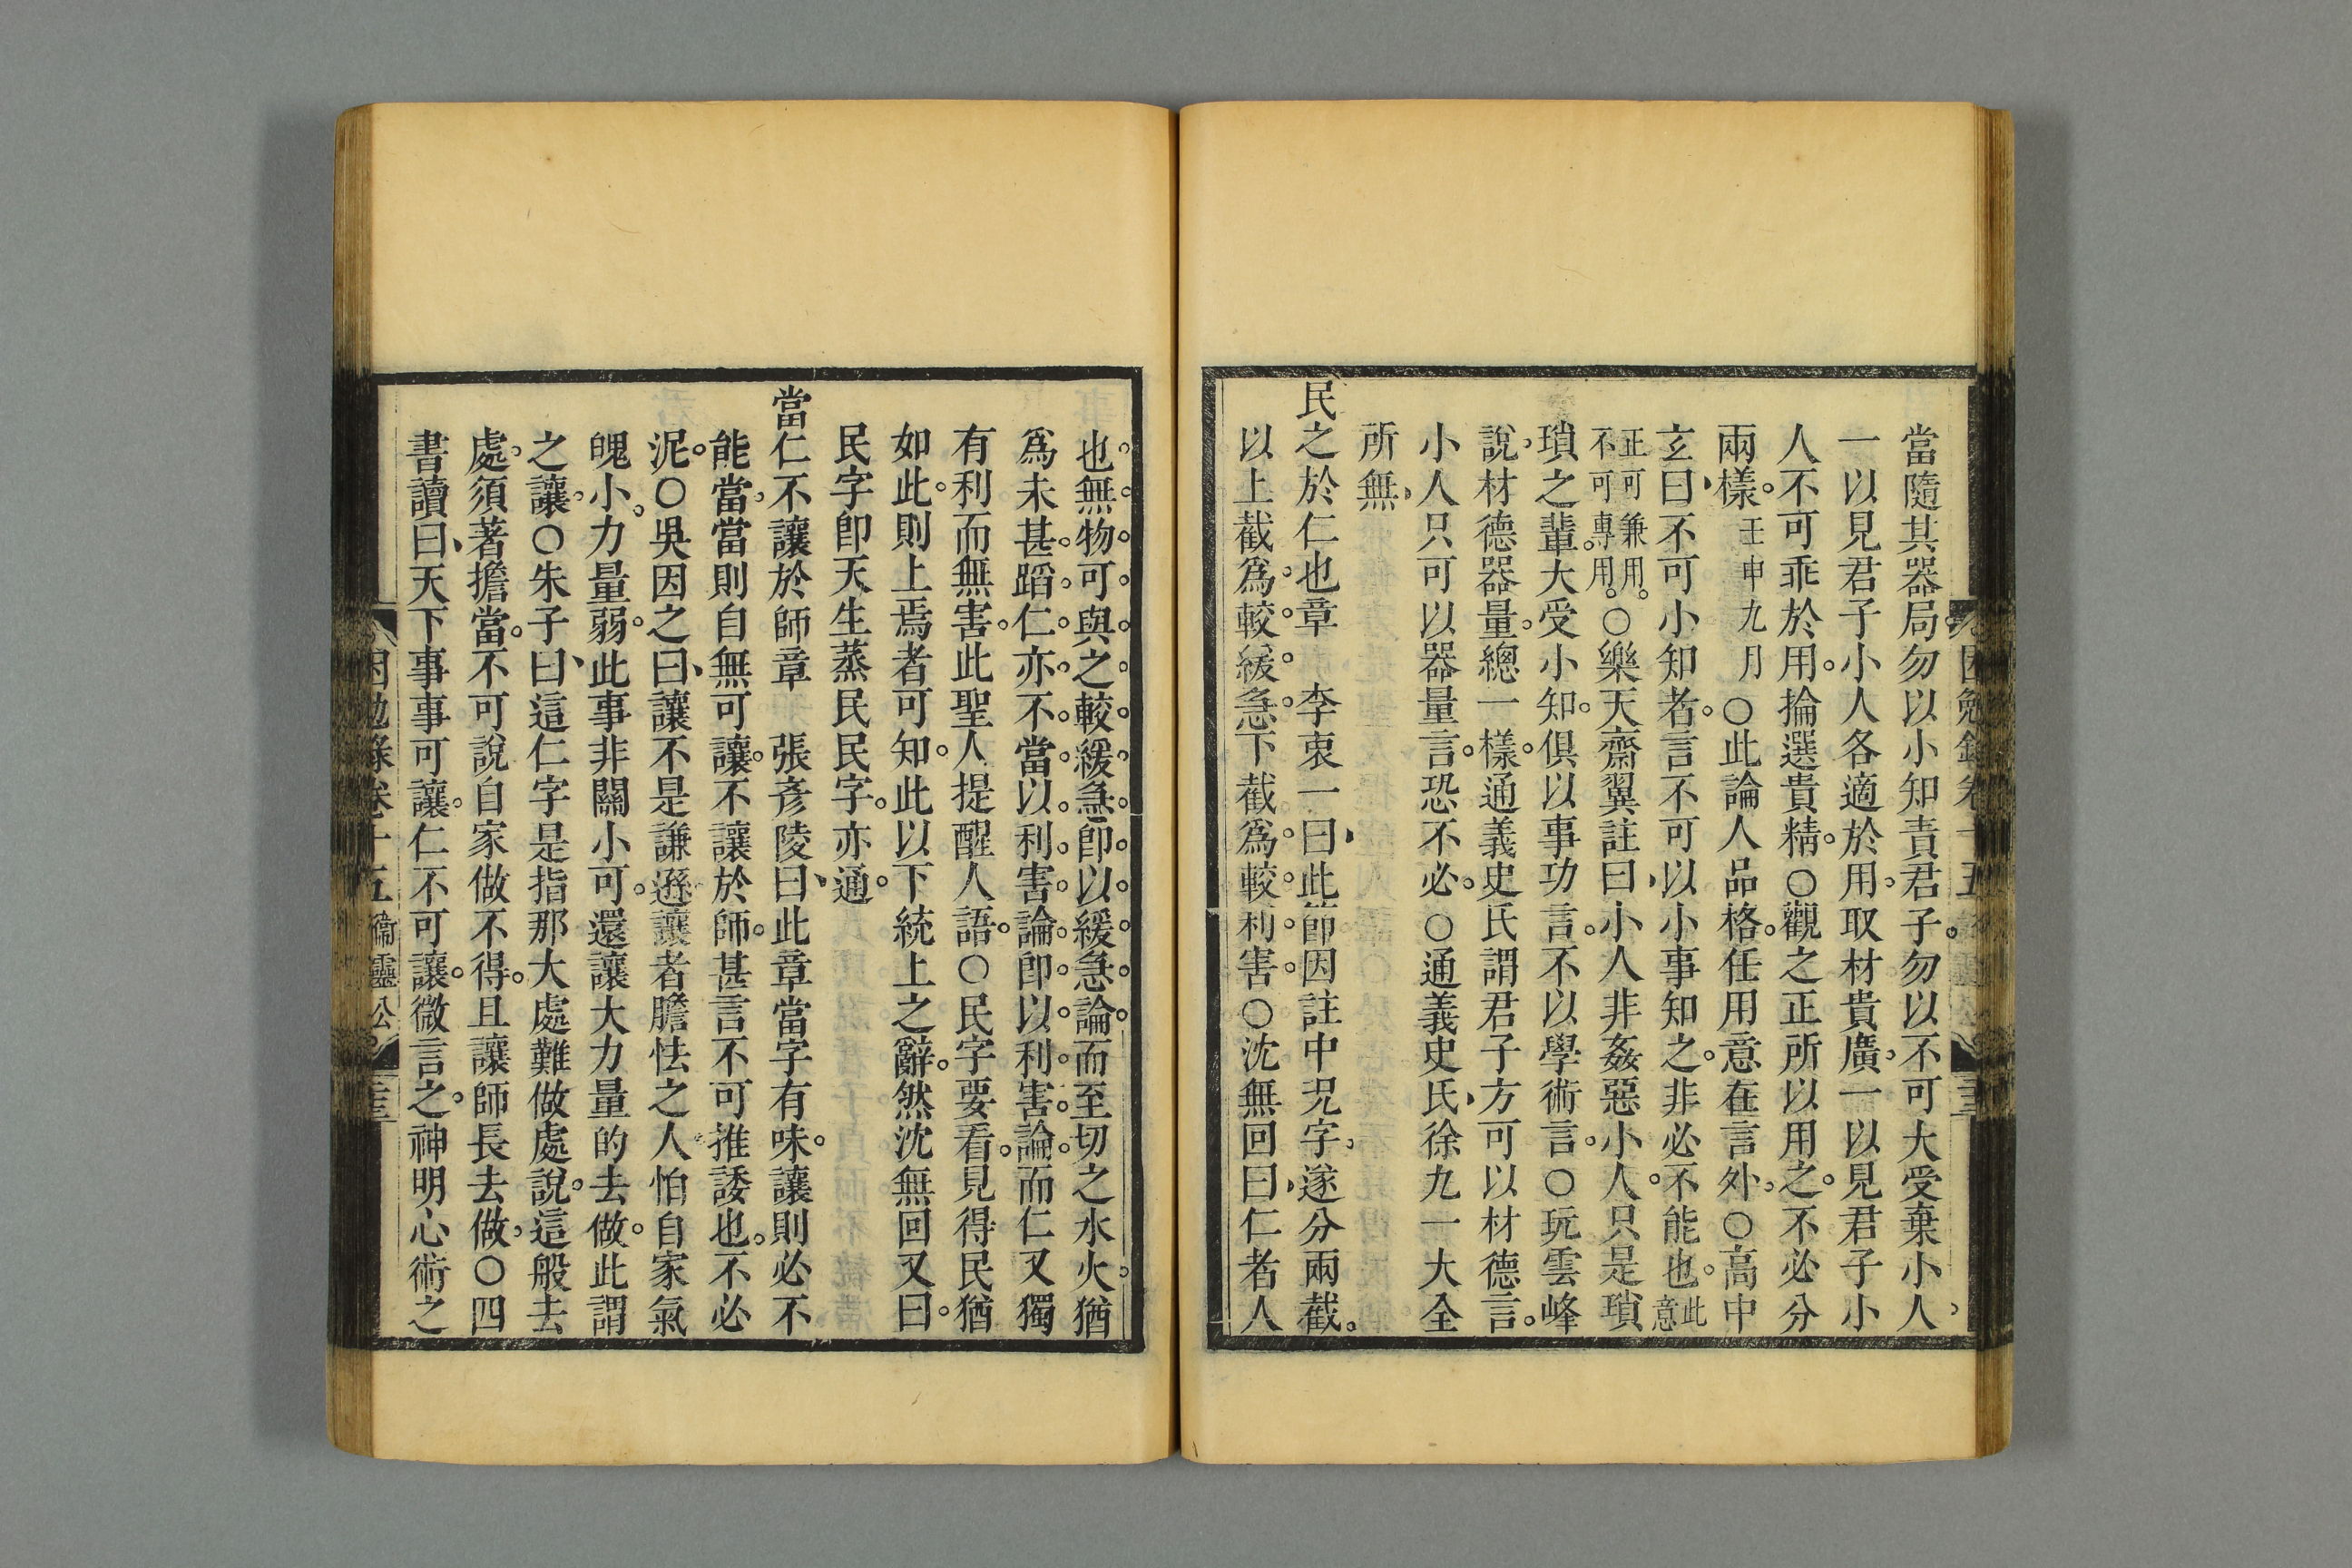 當隨其器局勿以小知責君子勿以不可大受棄小人
一以見君子小人各適於用取材貴廣一以見君子小
人不可乖於用掄選貴精○觀之正所以用之不必分
兩樣壬申九月○此論人品格任用意在言外○高中
玄曰不可小知者言不可以小事知之非必不能也此意
正可兼用不可專用○樂天齋翼註曰小人非姦惡小人只是瑣
瑣之輩大受小知俱以事功言不以學術言○玩雲峰
說材德器量總一樣通義史氏謂君子方可以材德言
小人只可以器量言恐不必○通義史氏徐九一大全
所無
民之於仁也章 李衷一曰此節因註中況字遂分兩截
以上截爲較緩急下截爲較利害○沈無回曰仁者人
也無物可與之較緩急卽以緩急論而至切之水火猶
爲未甚蹈仁亦不當以利害論卽以利害論而仁又獨
有利而無害此聖人提醒人語○民字要看見得民猶
如此則上焉者可知此以下統上之辭然沈無回又曰
民字卽天生蒸民民字亦通
當仁不讓於師章 張彥陵曰此章當字有味讓則必不
能當當則自無可讓不讓於師甚言不可推諉也不必
泥○吳因之曰讓不是謙遜讓者膽怯之人怕自家氣
魄小力量弱此事非關小可還讓大力量的去做此謂
之讓○朱子曰這仁字是指那大處難做處說這般去
處須著擔當不可說自家做不得且讓師長去做○四
書讀曰天下事事可讓仁不可讓微言之神明心術之
困勉錄卷十五 衞靈公